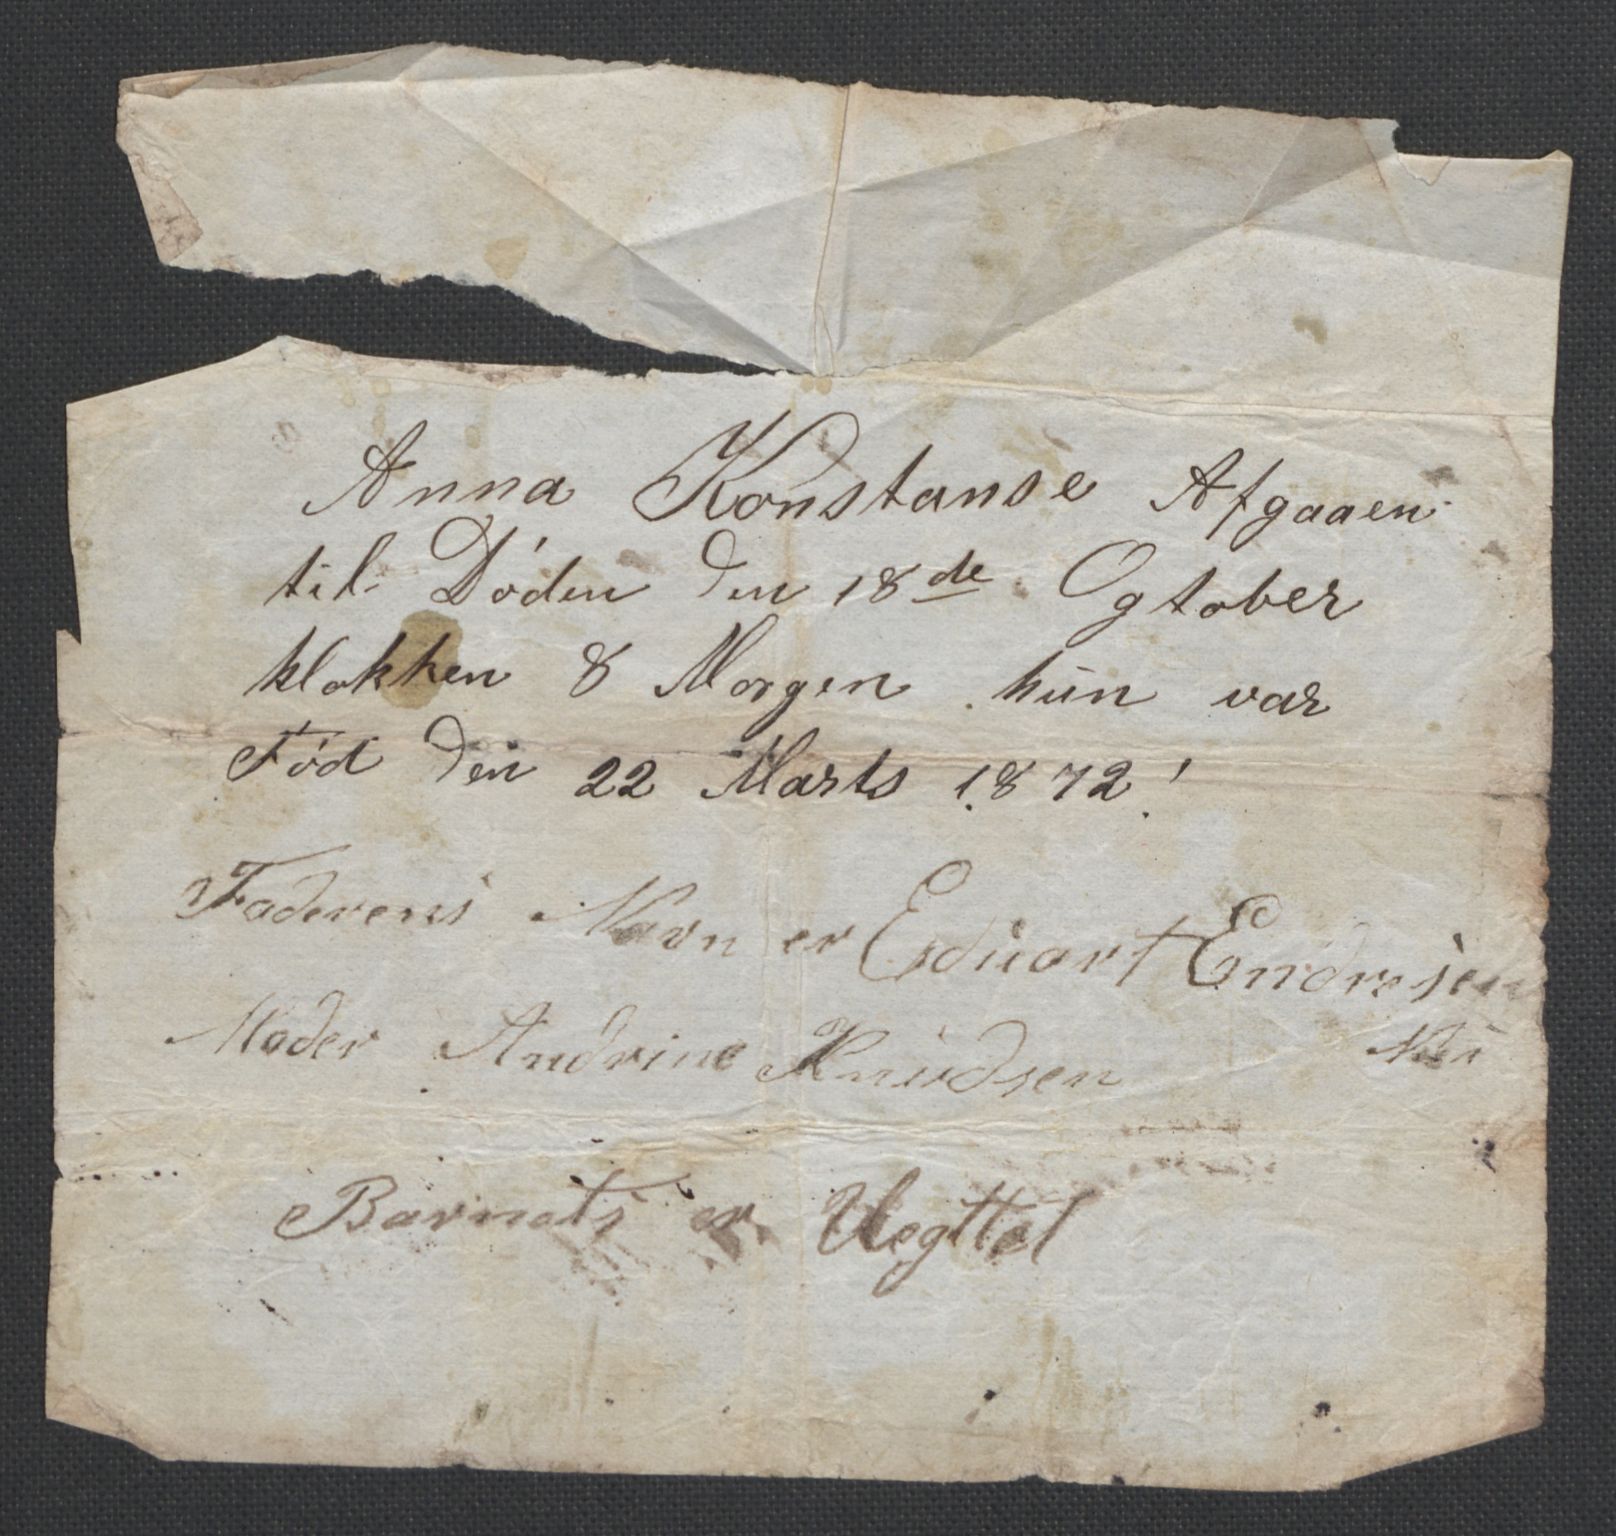 Anna Konstanse Afgaaen
til Døden den 18de Ogtober
klokken 8 Morgen hun var
Fød den 22 Marts 1872!
Faderens Navn er Eduart Endresen
Moder Andrine Knudsen
Barnets er Uegttet